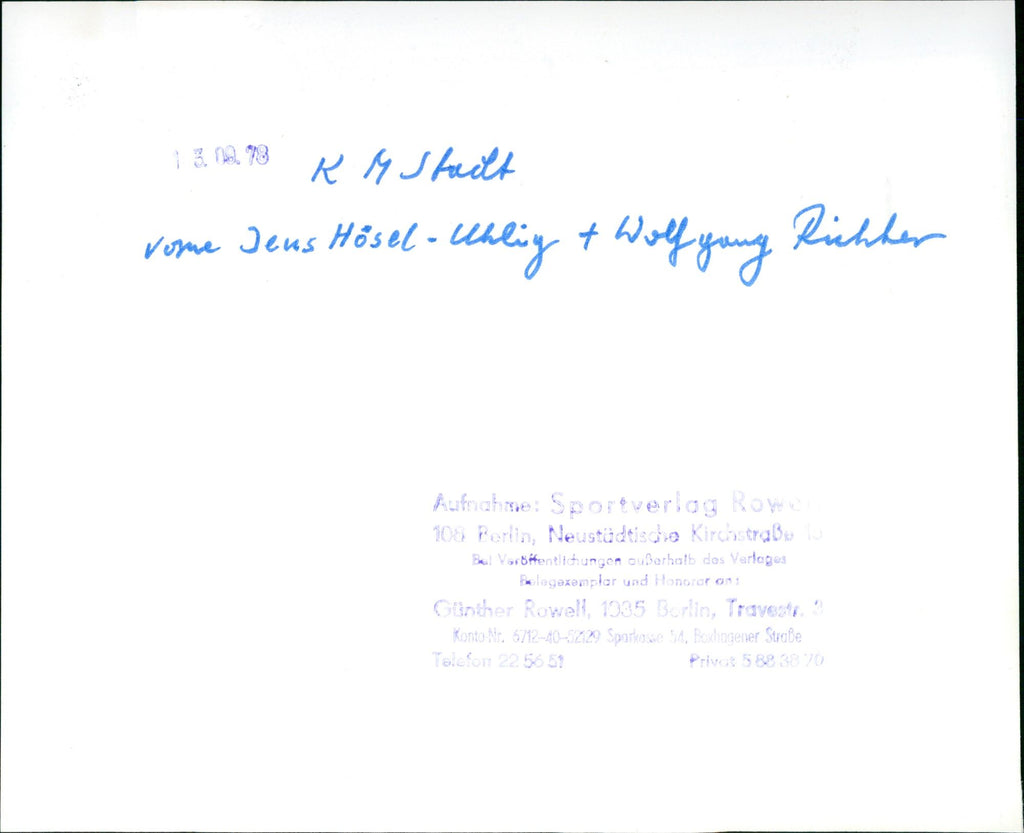 13.09.78
K M Stadt
vorne Jens Hösel-Uhlig + Wolfgang Richter
Aufnahme: Sportverlag Rowell
108 Berlin, Neustädtische Kirchstraße 15
Bei Veröffentlichungen außerhalb des Verlages
Belegexemplar und Honorar an:
Günther Rowell, 1035 Berlin, Travestr. 3
Konto-Nr. 6712-40-52129 Sparkasse 54, Boxhagener Straße
Telefon 22 56 51 Privat 5 88 38 70